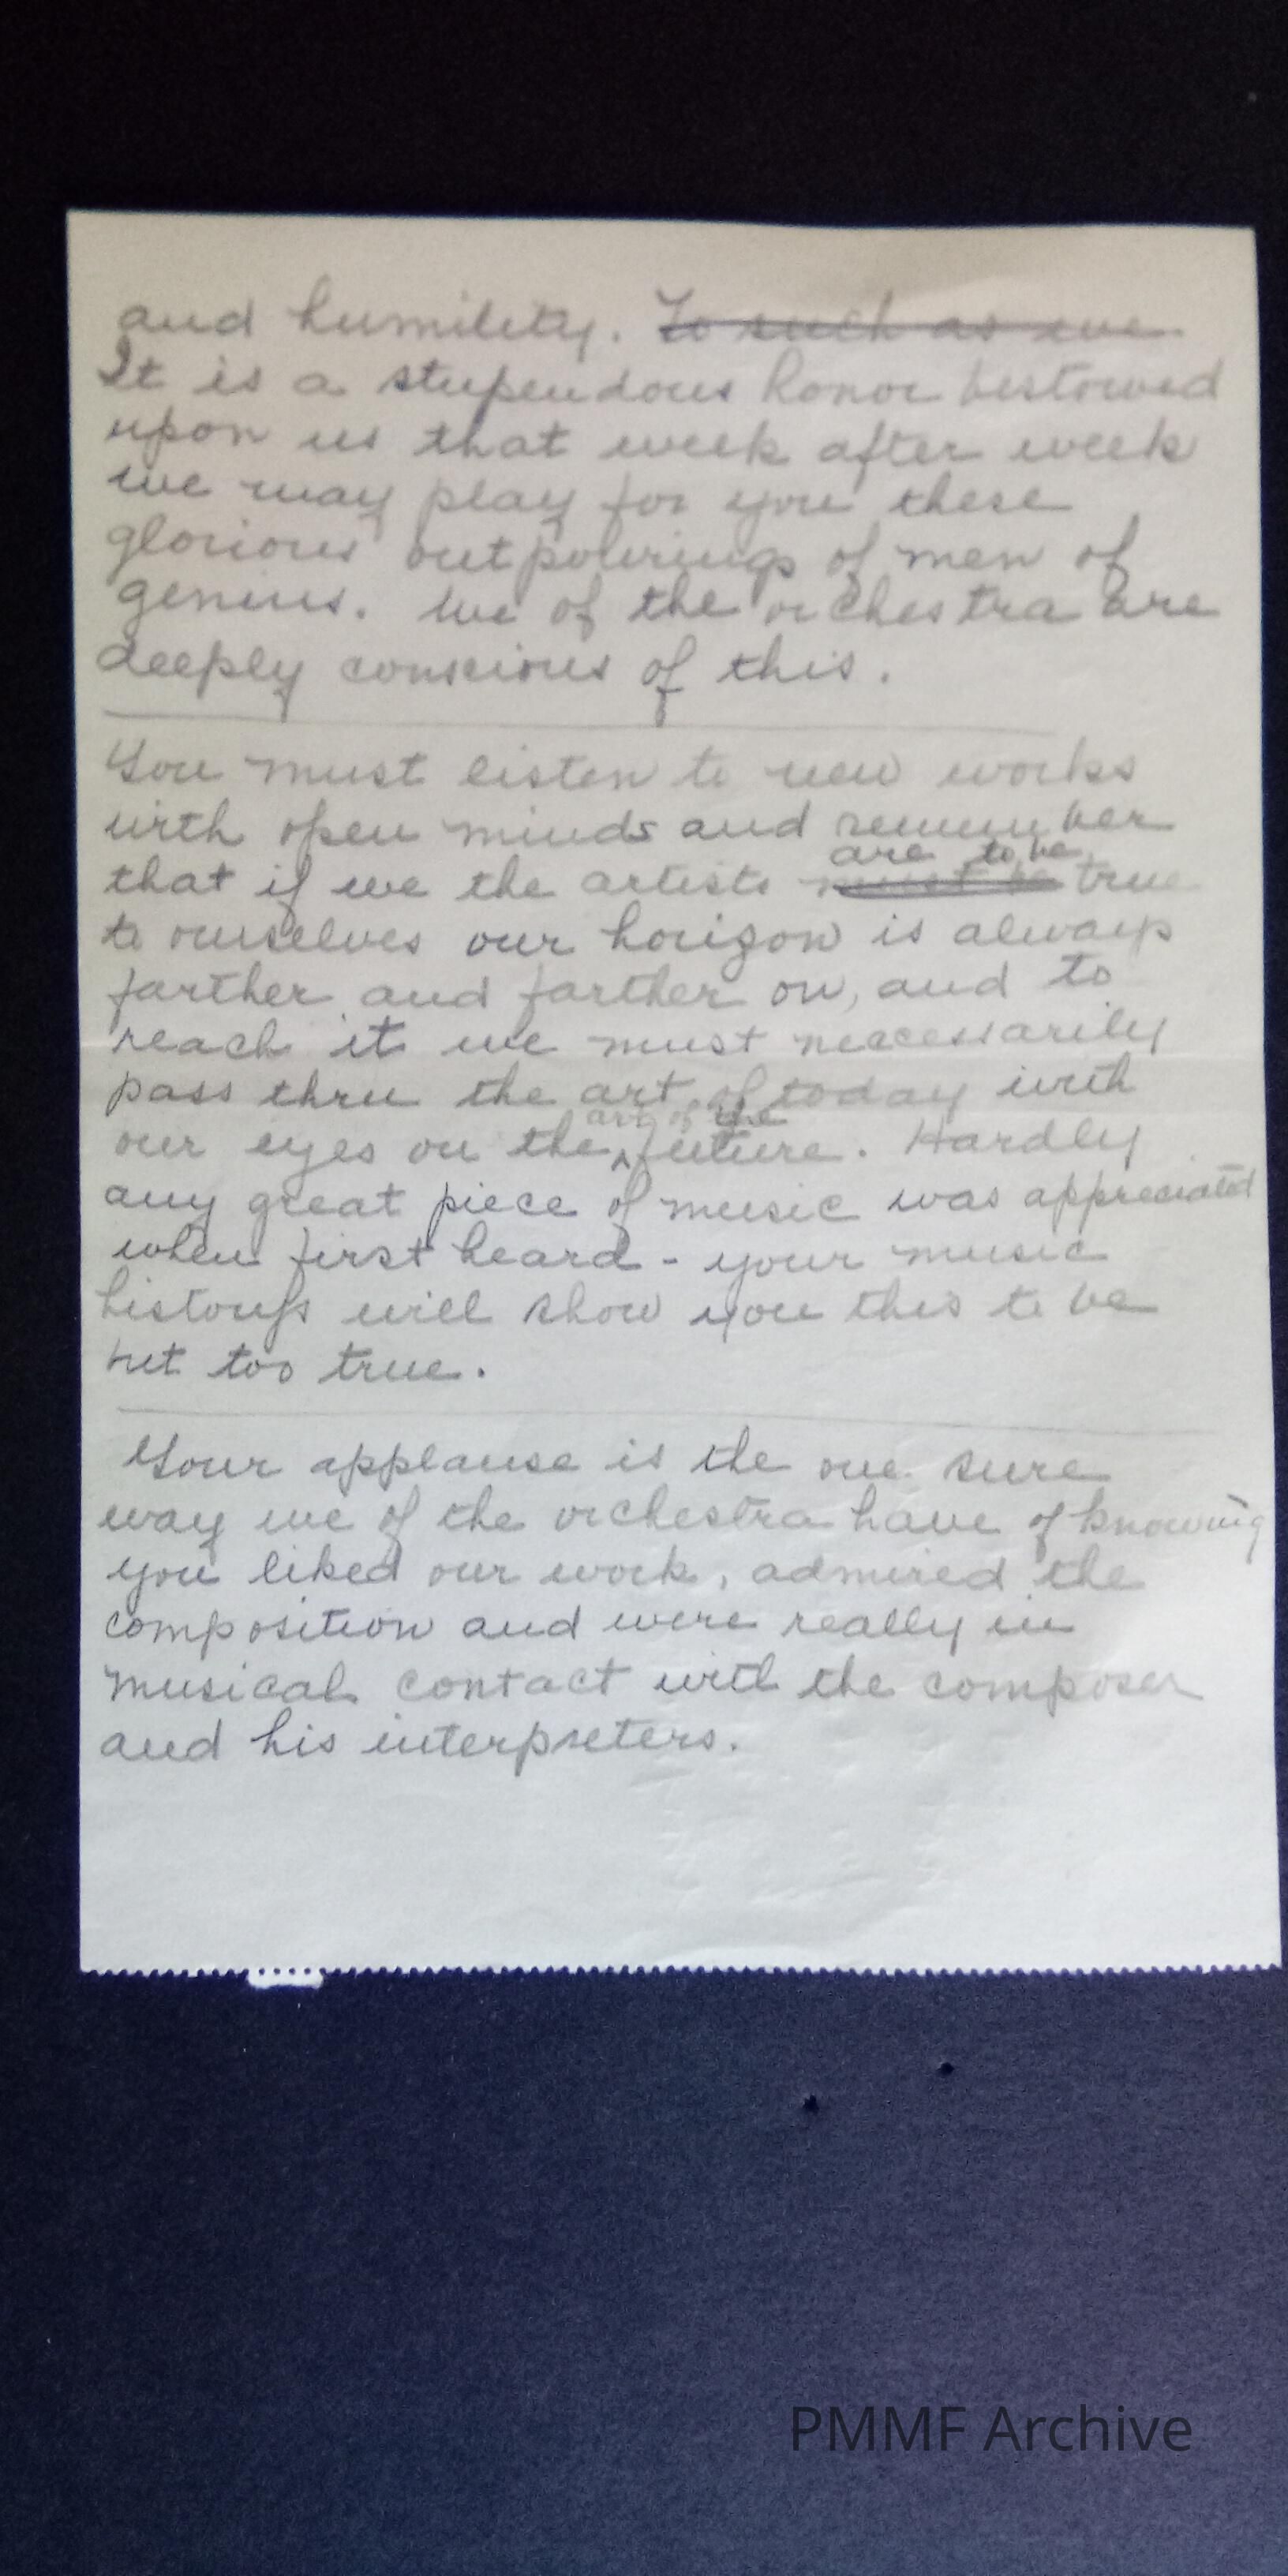 and humility. To such as we
It is a stupendous honor bestowed
upon us that week after week
we may play for you these
glorious outpourings of men of
genius. We of the orchestra are
deeply conscious of this.
You must listen to new works
with open minds and remember
are to be
that if we the artists must be true
to ourselves our horizon is always
farther and farther on, and to
reach it we must neccessarily
pass thru the art of today with
art of the
our eyes on the future. Hardly
any great piece of music was appreciated
when first heard - your music
historys will show you this to be
but too true.
Your applause is the one sure
way we of the orchestra have of knowing
you liked our work, admired the
composition and were really in
musical contact with the composer
and his interpreters.
PMMF Archive